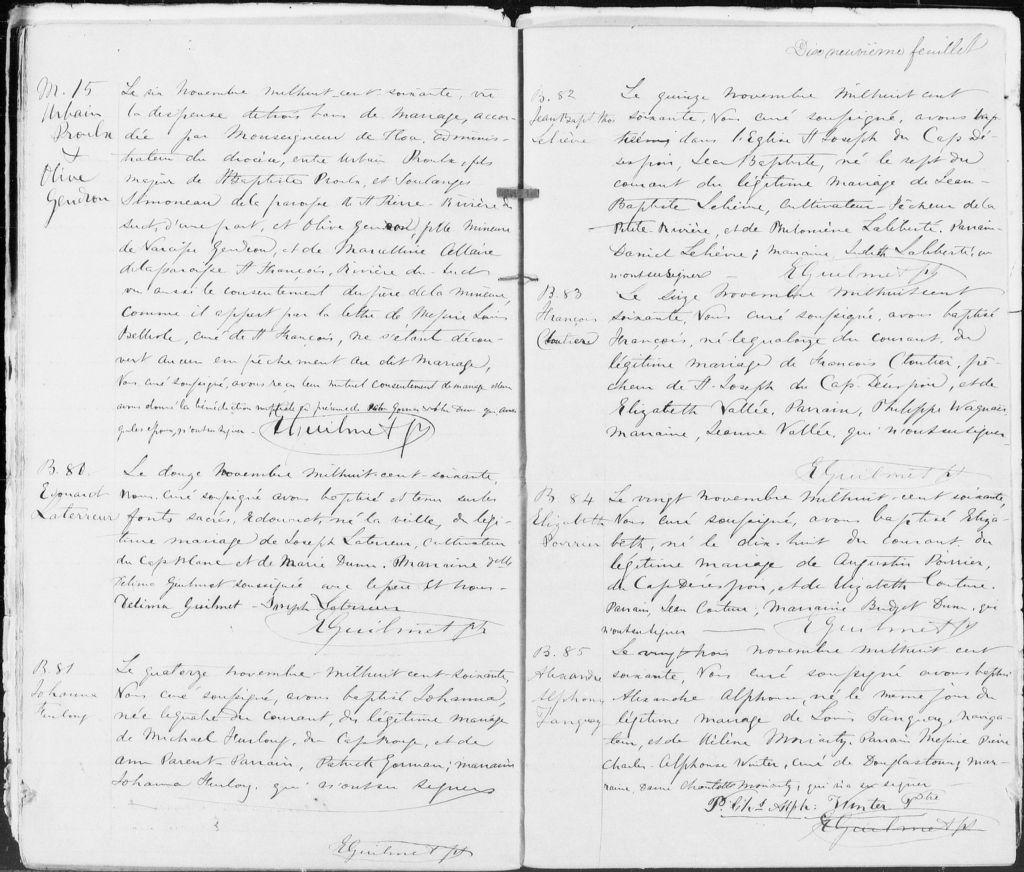 M. 15
Urbain
Proulx
+
Olive
Gendron
Le six Novembre milhuit-cent-soixante, vu
la dispense de trois bans de mariage, accor-
dée par Monseigneur de Tloa, adminis-
trateur du diocèse, entre Urbain Proulx, fils
majeur de Jn Baptiste Proulx, et Soulanges
Simoneau de la paroisse de St Pierre-Rivière du
sud, d'une part, et Olive Gendron, fille mineure
de Narcisse Gendron, et de Marcelline
de la paroisse St François, Rivière du Sud
vu aussi le consentement du père de la mineure,
comme il appert par la lettre de Messire Louis
curé de St François, ne s'étant décou-
vert aucun empêchement au dit mariage,
Nous curé soussigné, avons reçu leur mutuel consentement de mariage et leur
avons donné la bénédiction nuptiale en présence de
qui avec les époux, n'ont su signer.
EGuilmet ptr
B. 80
Edouard
Laterreur
Le douze Novembre milhuit-cent-soixante,
Nous, curé soussigné avons baptisé et tenu sur les
fonts sacrés, Edouard, né la veille, du légi-
time mariage de Joseph Laterreur, cultivateur
du Cap Blanc et de Marie Dunn. Marraine Delle
Zelima Guilmet soussignée avec le père et nous-
Zelima Guilmet - Joseph Laterreur
EGuilmet ptr
B. 81
Johanna
Furlong
Le quatorze novembre-milhuit cent soixante,
Nous curé soussigné, avons baptisé Johanna,
née le quatre du courant, du légitime mariage
de Michael Furlong, du Cap Rouge, et de
Ann Parent - Parrain, Patrick Gorman; marraine
Johanna Furlong, qui n'ont su signer
EGuilmet ptr
Dix neuvième feuillet
B. 82
Jean Bapt. Thos
Lelièvre
Le quinze Novembre milhuit cent
soixante, Nous curé soussigné, avons bap-
tisé sous dans l'Eglise St Joseph du Cap Dé-
sespoir, Jean Baptiste, né le sept du
courant du légitime mariage de Jean-
Baptiste Lelièvre, cultivateur-Pêcheur de la
Petite-Rivière, et de Philomène Laliberté, Parrain
Daniel Lelièvre; marraine, Judith Laliberté, qui
n'ont su signer - EGuilmet ptr
B. 83
François
Cloutier
Le seize Novembre milhuit cent
soixante, Nous curé soussigné, avons baptisé
François, né le quatorze du courant, du
légitime mariage de François Cloutier, pê-
cheur de St Joseph du Cap Désespoir, et de
Elizabeth Vallée. Parrain, Philippe
Marraine, Jeanne Vallée, qui n'ont su signer
EGuilmet ptr
B. 84
Elizabeth
Poirrier
Le vingt Novembre milhuit-cent soixante,
Nous curé soussigné, avons baptisé Eliza-
beth, né le dix-huit du courant, du
légitime mariage de Augustin Poirrier,
du Cap Désespoir, et de Elizabeth Couture.
Parrain, Jean Couture, Marraine Bridget Dunn, qui
n'ont su signer - EGuilmet ptr
B. 85
Alexandre
Alphonse
Tanguay
Le vingt-trois novembre milhuit cent
soixante, Nous curé soussigné avons baptisé
Alexandre Alphonse, né le même jour du
légitime mariage de Louis Tanguay, naviga-
teur, et de Hélène Moriarty. Parrain Messire Pierre
Charles-Alphonse Winter, curé de Douglastown; mar-
raine, Dame Charlotte Moriarty, qui n'a su signer -
P. Chs Alph: Winter Ptre
EGuilmet ptr